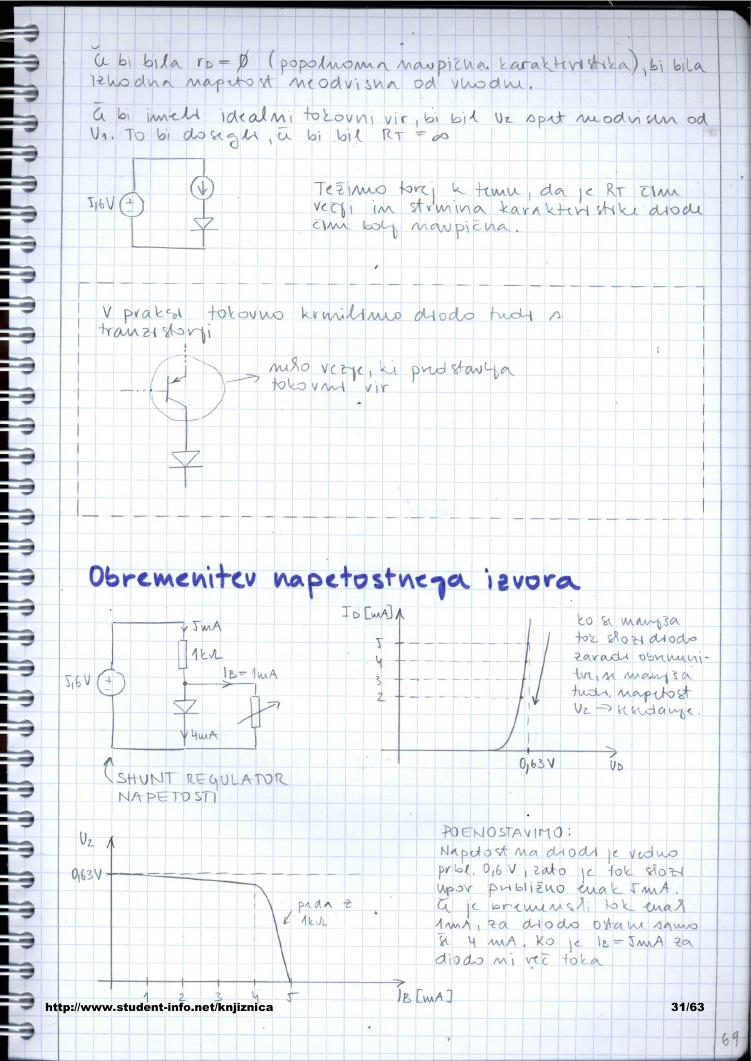 Če bi bila rD = Ø (popolnoma navpična karakteristika), bi bila
izhodna napetost neodvisna od vhodne.
Če bi imeli idealni tokovni vir, bi bil Uz spet neodvisen od
U1. To bi dosegli, če bi bil RT = ∞
5,6V
Težimo torej k temu, da je RT čim
večji in strmina karakteristike diode
čim bolj navpična.
V praksi tokovno krmilimo diodo tudi s
tranzistorji
neko vezje, ki predstavlja
tokovni vir
Obremenitev napetostnega izvora
5mA
1kΩ
IB = 1mA
5,6V
4mA
SHUNT REGULATOR
NAPETOSTI
ID [mA]
5
4
3
2
0,63V
UD
ko se manjša
tok skozi diodo
zaradi obremeni-
tve, se manjša
tudi napetost
Uz → sesedanje.
Uz
0,63V
pada z
1kΩ
1 2 3 4 5
IB [mA]
POENOSTAVIMO:
Napetost na diodi je vedno
pribl. 0,6V, zato je tok skozi
upor približno enak 5mA.
Če je bremenski tok enak
1mA, za diodo ostane samo
še 4 mA. Ko je IB = 5mA za
diodo ni več toka
http://www.student-info.net/knjiznica
31/63
69